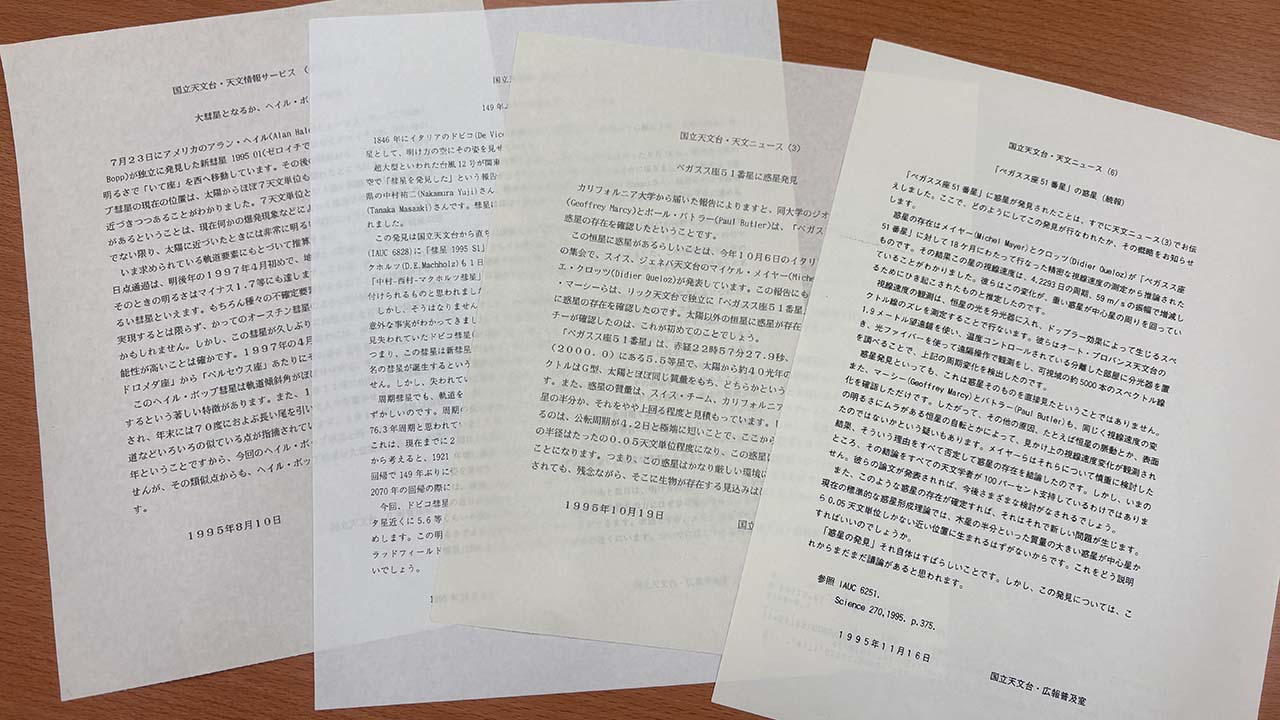 国立天文台・天文情報サービス (
大彗星となるか、ヘイル・ボ
7月23日にアメリカのアラン・ヘイル(Alan Hale
Bopp)が独立に発見した新彗星 1995 O1(ゼロイチで
明るさで「いて座」を西へ移動しています。その後の
プ彗星の現在の位置は、太陽からほぼ7天文単位も
近づきつつあることがわかりました。7天文単位と
があるということは、現在何かの爆発現象などによ
でない限り、太陽に近づいたときには非常に明る
いま求められている軌道要素にもとづいて推算
日点通過は、明後年の1997年4月初めで、地
そのときの明るさはマイナス1.7等にも達しま
るい彗星といえます。もちろん種々の不確定要
実現するとは限らず、かつてのオースチン彗星
かもしれません。しかし、この彗星が久しぶり
能性が高いことは確かです。1997年の4月
ドロメダ座」から「ペルセウス座」あたりにそ
このヘイル・ボップ彗星は軌道傾斜角がほ
するという著しい特徴があります。また、1
され、年末には70度におよぶ長い尾を引い
道などいろいろの似ている点が指摘されてい
年ということですから、今回のヘイル・ボッ
せんが、その類似点からも、ヘイル・ボッ
す。
1995年8月10日
国立天
149年ぶ
1846年にイタリアのドビコ(De Vico
星として、明け方の空にその姿を見せ
超大型といわれた台風12号が関東
空で「彗星を発見した」という報告
県の中村祐二(Nakamura Yuji)さん
(Tanaka Masaaki)さんです。彗星に
れました。
この発見は国立天文台から直ち
(IAUC 6828)に「彗星 1995 S1」
クホルツ(D.E.Machholz)も1日
「中村-西村-マクホルツ彗星」
付けられるものと思われました
しかし、そうはなりません
意外な事実がわかってきまし
見失われていたドビコ彗星(
つまり、この彗星は新彗星
名の彗星が誕生するという
せん。しかし、失われてい
周期彗星でも、軌道を
ずかしいのです。周期の
76.3年周期と思われてい
これは、現在までに2
から考えると、1921
回帰で149年ぶりに
2070年の回帰の際に
今回、ドビコ彗星の
タ星近くに5.6等く
めします。この明
ラッドフィールド
いでしょう。
国立天文台・天文ニュース (3)
ペガスス座51番星に惑星発見
カリフォルニア大学から届いた報告によりますと、同大学のジオ
(Geoffrey Marcy)とポール・バトラー(Paul Butler)は、「ペガス
惑星の存在を確認したということです。
この恒星に惑星があるらしいことは、今年10月6日のイタリア
の集会で、スイス、ジェネバ天文台のマイケル・メイヤー(Mich
エ・クロッツ(Didier Queloz)が発表しています。この報告にも
・マーシーらは、リック天文台で独立に「ペガスス座51番星」
に惑星の存在を確認したのです。太陽以外の恒星に惑星が存在
チーが確認したのは、これが初めてのことでしょう。
「ペガスス座51番星」は、赤経22時57分27.9秒、
(2000.0)にある5.5等星で、太陽から約40光年の
クトルはG型、太陽とほぼ同じ質量をもち、どちらかという
す。また、惑星の質量は、スイス・チーム、カリフォルニア
星の半分か、それをやや上回る程度と見積もっています。
るのは、公転周期が4.2日と極端に短いことで、ここから
の半径はたったの0.05天文単位程度になり、この惑星に
ことになります。つまり、この惑星はかなり厳しい環境に
されても、残念ながら、そこに生物が存在する見込みは
1995年10月19日
国立
国立天文台・天文ニュース (6)
「ペガスス座51番星」の惑星(続報)
「ペガスス座51番星」に惑星が発見されたことは、すでに天文ニュース(3)でお伝
えしました。ここで、どのようにしてこの発見が行なわれたか、その概略をお知らせ
します。
惑星の存在はメイヤー(Michel Mayer)とクロッツ(Didier Queloz)が「ペガスス座
51番星」に対して18ヶ月にわたって行なった精密な視線速度の測定から推論された
ものです。その結果この星の視線速度は、4.2293日の周期、59m/sの振幅で増減し
ていることがわかりました。彼らはこの変化が、重い惑星が中心星の周りを回ってい
るためにひき起こされたものと推定したのです。
視線速度の観測は、恒星の光を分光器に入れ、ドップラー効果によって生じるスペ
クトル線のズレを測定することで行ないます。彼らはオート・プロバンス天文台の
1.9メートル望遠鏡を使い、温度コントロールされている分離した部屋に分光器を置
き、光ファイバーを使って遠隔操作で観測をし、可視域の約5000本のスペクトル線
を調べることで、上記の周期変化を検出したのです。
惑星発見といっても、これは惑星そのものを直接見たということではありません。
また、マーシー(Geoffrey Marcy)とバトラー(Paul Butler)も、同じく視線速度の変
化を確認しただけです。したがって、その他の原因、たとえば恒星の脈動とか、表面
の明るさにムラがある恒星の自転とかによって、見かけ上の視線速度変化が観測され
たのではないかという疑いもあります。メイヤーらはそれらについて慎重に検討した
結果、そういう理由をすべて否定して惑星の存在を結論したのです。しかし、いまの
ところ、その結論をすべての天文学者が100パーセント支持しているわけではありま
せん。彼らの論文が発表されれば、今後さまざまな検討がなされるでしょう。
また、このような惑星の存在が確定すれば、それはそれで新しい問題が生じます。
現在の標準的な惑星形成理論では、木星の半分といった質量の大きい惑星が中心星か
ら0.05天文単位しかない近い位置に生まれるはずがないからです。これをどう説明
すればいいのでしょうか。
「惑星の発見」それ自体はすばらしいことです。しかし、この発見については、こ
れからまだまだ議論があると思われます。
参照 IAUC 6251.
Science 270,1995. p.375.
1995年11月16日
国立天文台・広報普及室